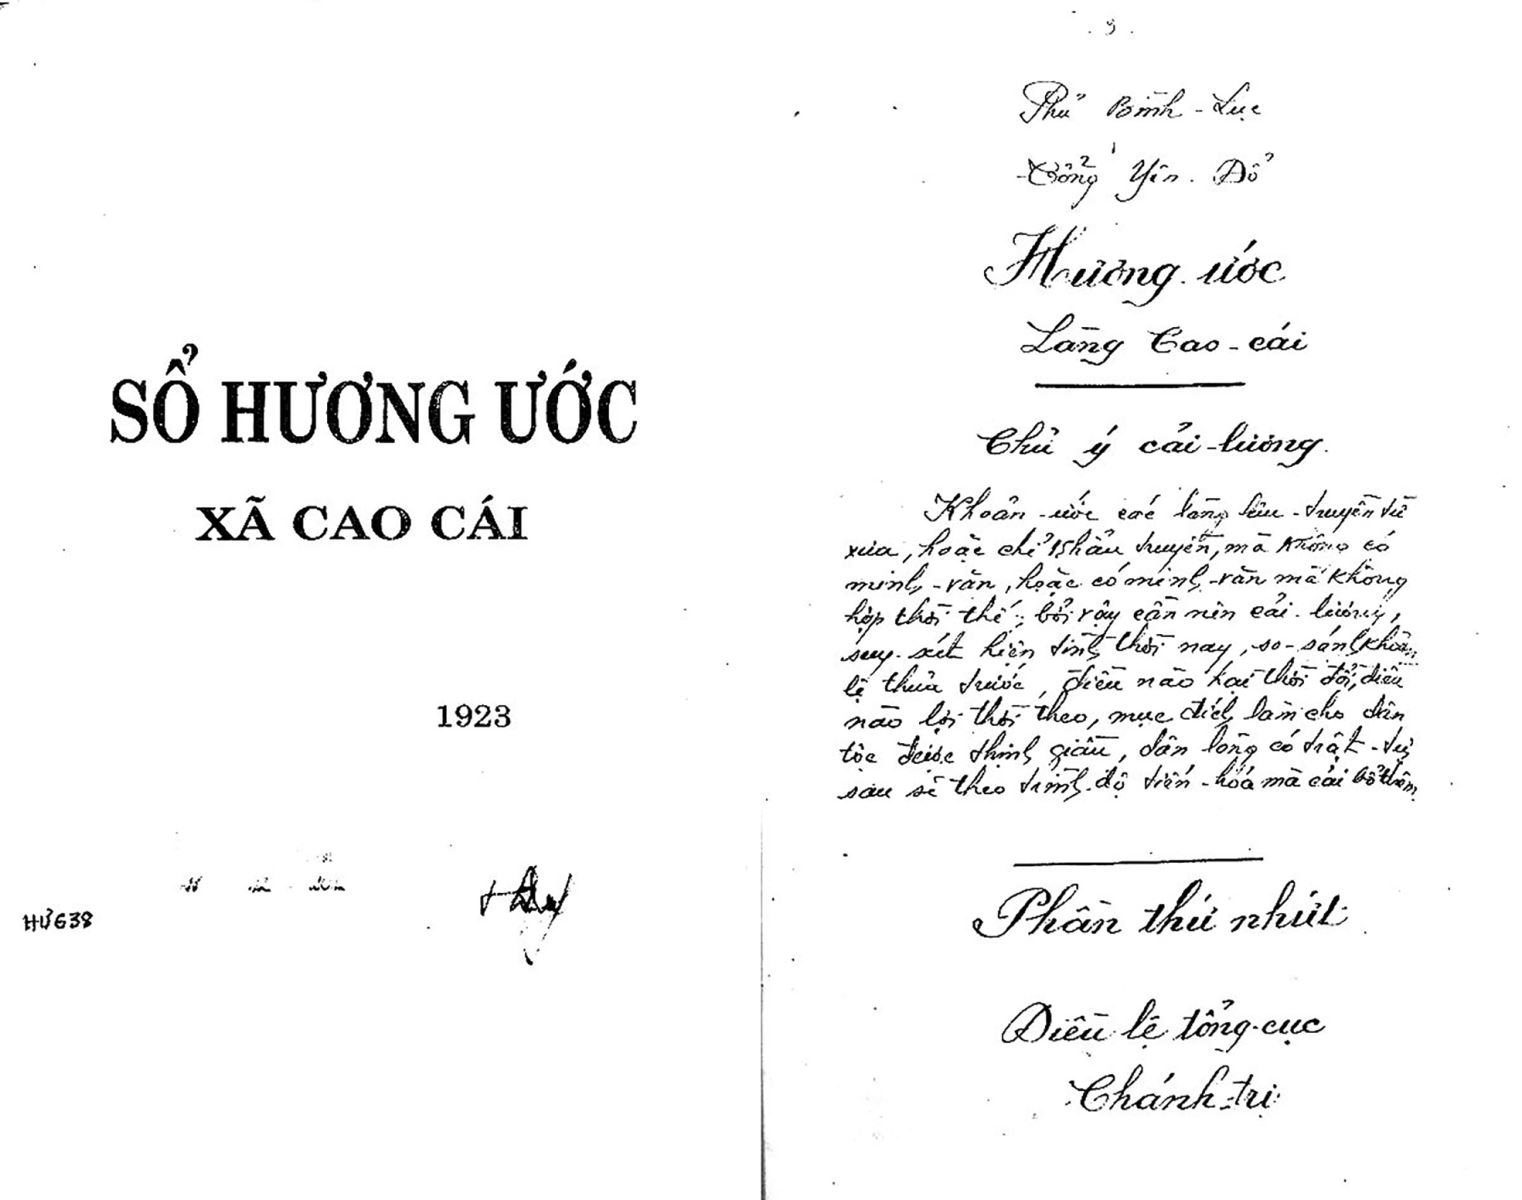 SỔ HƯƠNG ƯỚC
XÃ CAO CÁI
1923
HƯ638
3
Phủ Bình-Lục
Tổng Yên-Đổ
Hương-ước
Làng Cao-cái
Chủ ý cải-lương.
Khoán-ước các làng lưu-truyền từ
xưa, hoặc chỉ khẩu truyền, mà không có
minh-văn, hoặc có minh-văn mà không
hợp thời thế; bởi vậy cần nên cải-lương,
suy-xét hiện tình thời nay, so-sánh khoán
lệ thuở trước, điều nào hại thời đổi, điều
nào lợi thời theo, mục đích làm cho dân
tộc được thịnh giầu, dân làng có trật-tự,
sau sẽ theo trình-độ tiến-hóa mà cải bổ thêm.
Phần thứ nhứt
Điều lệ tổng-cục
Chánh-trị